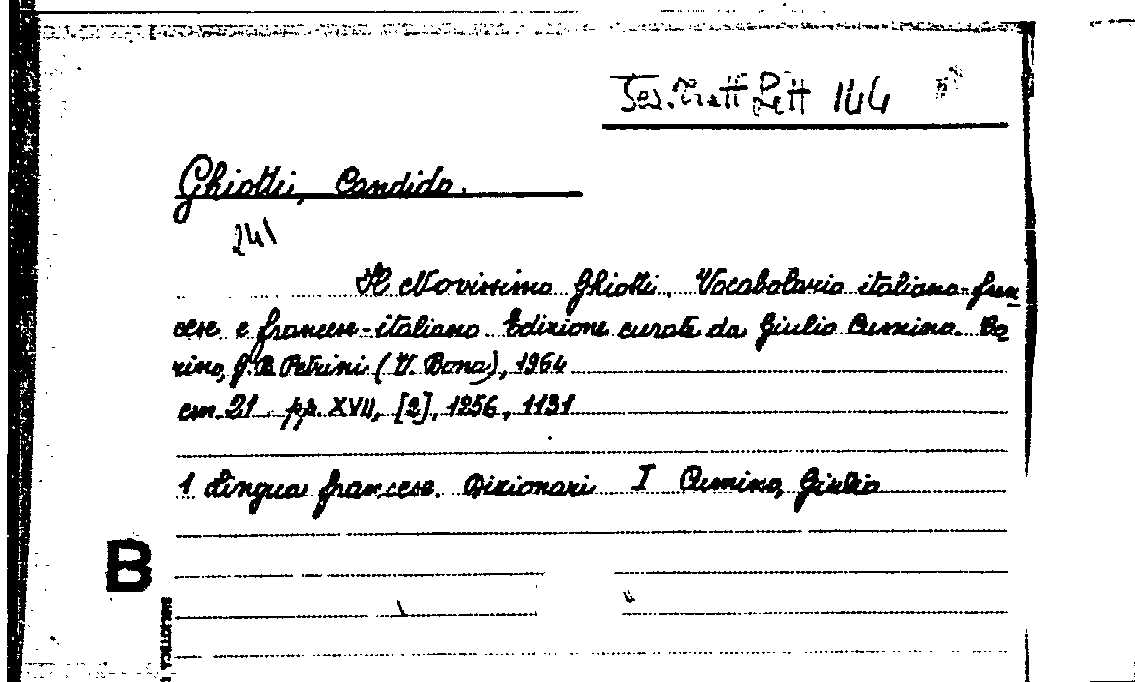 Ses. Tratt Lett 144
Ghiotti, Candido.
241
Il Novissimo Ghiotti. Vocabolario italiano-fran
cese e francese-italiano. Edizione curata da Giulio Cumino. To
rino, G.B. Petrini (V. Bona), 1964
cm. 21 pp. XVII, [2], 1256, 1131
1 Lingua francese. Dizionari I Cumino, Giulio
B
BIBLIOTECA